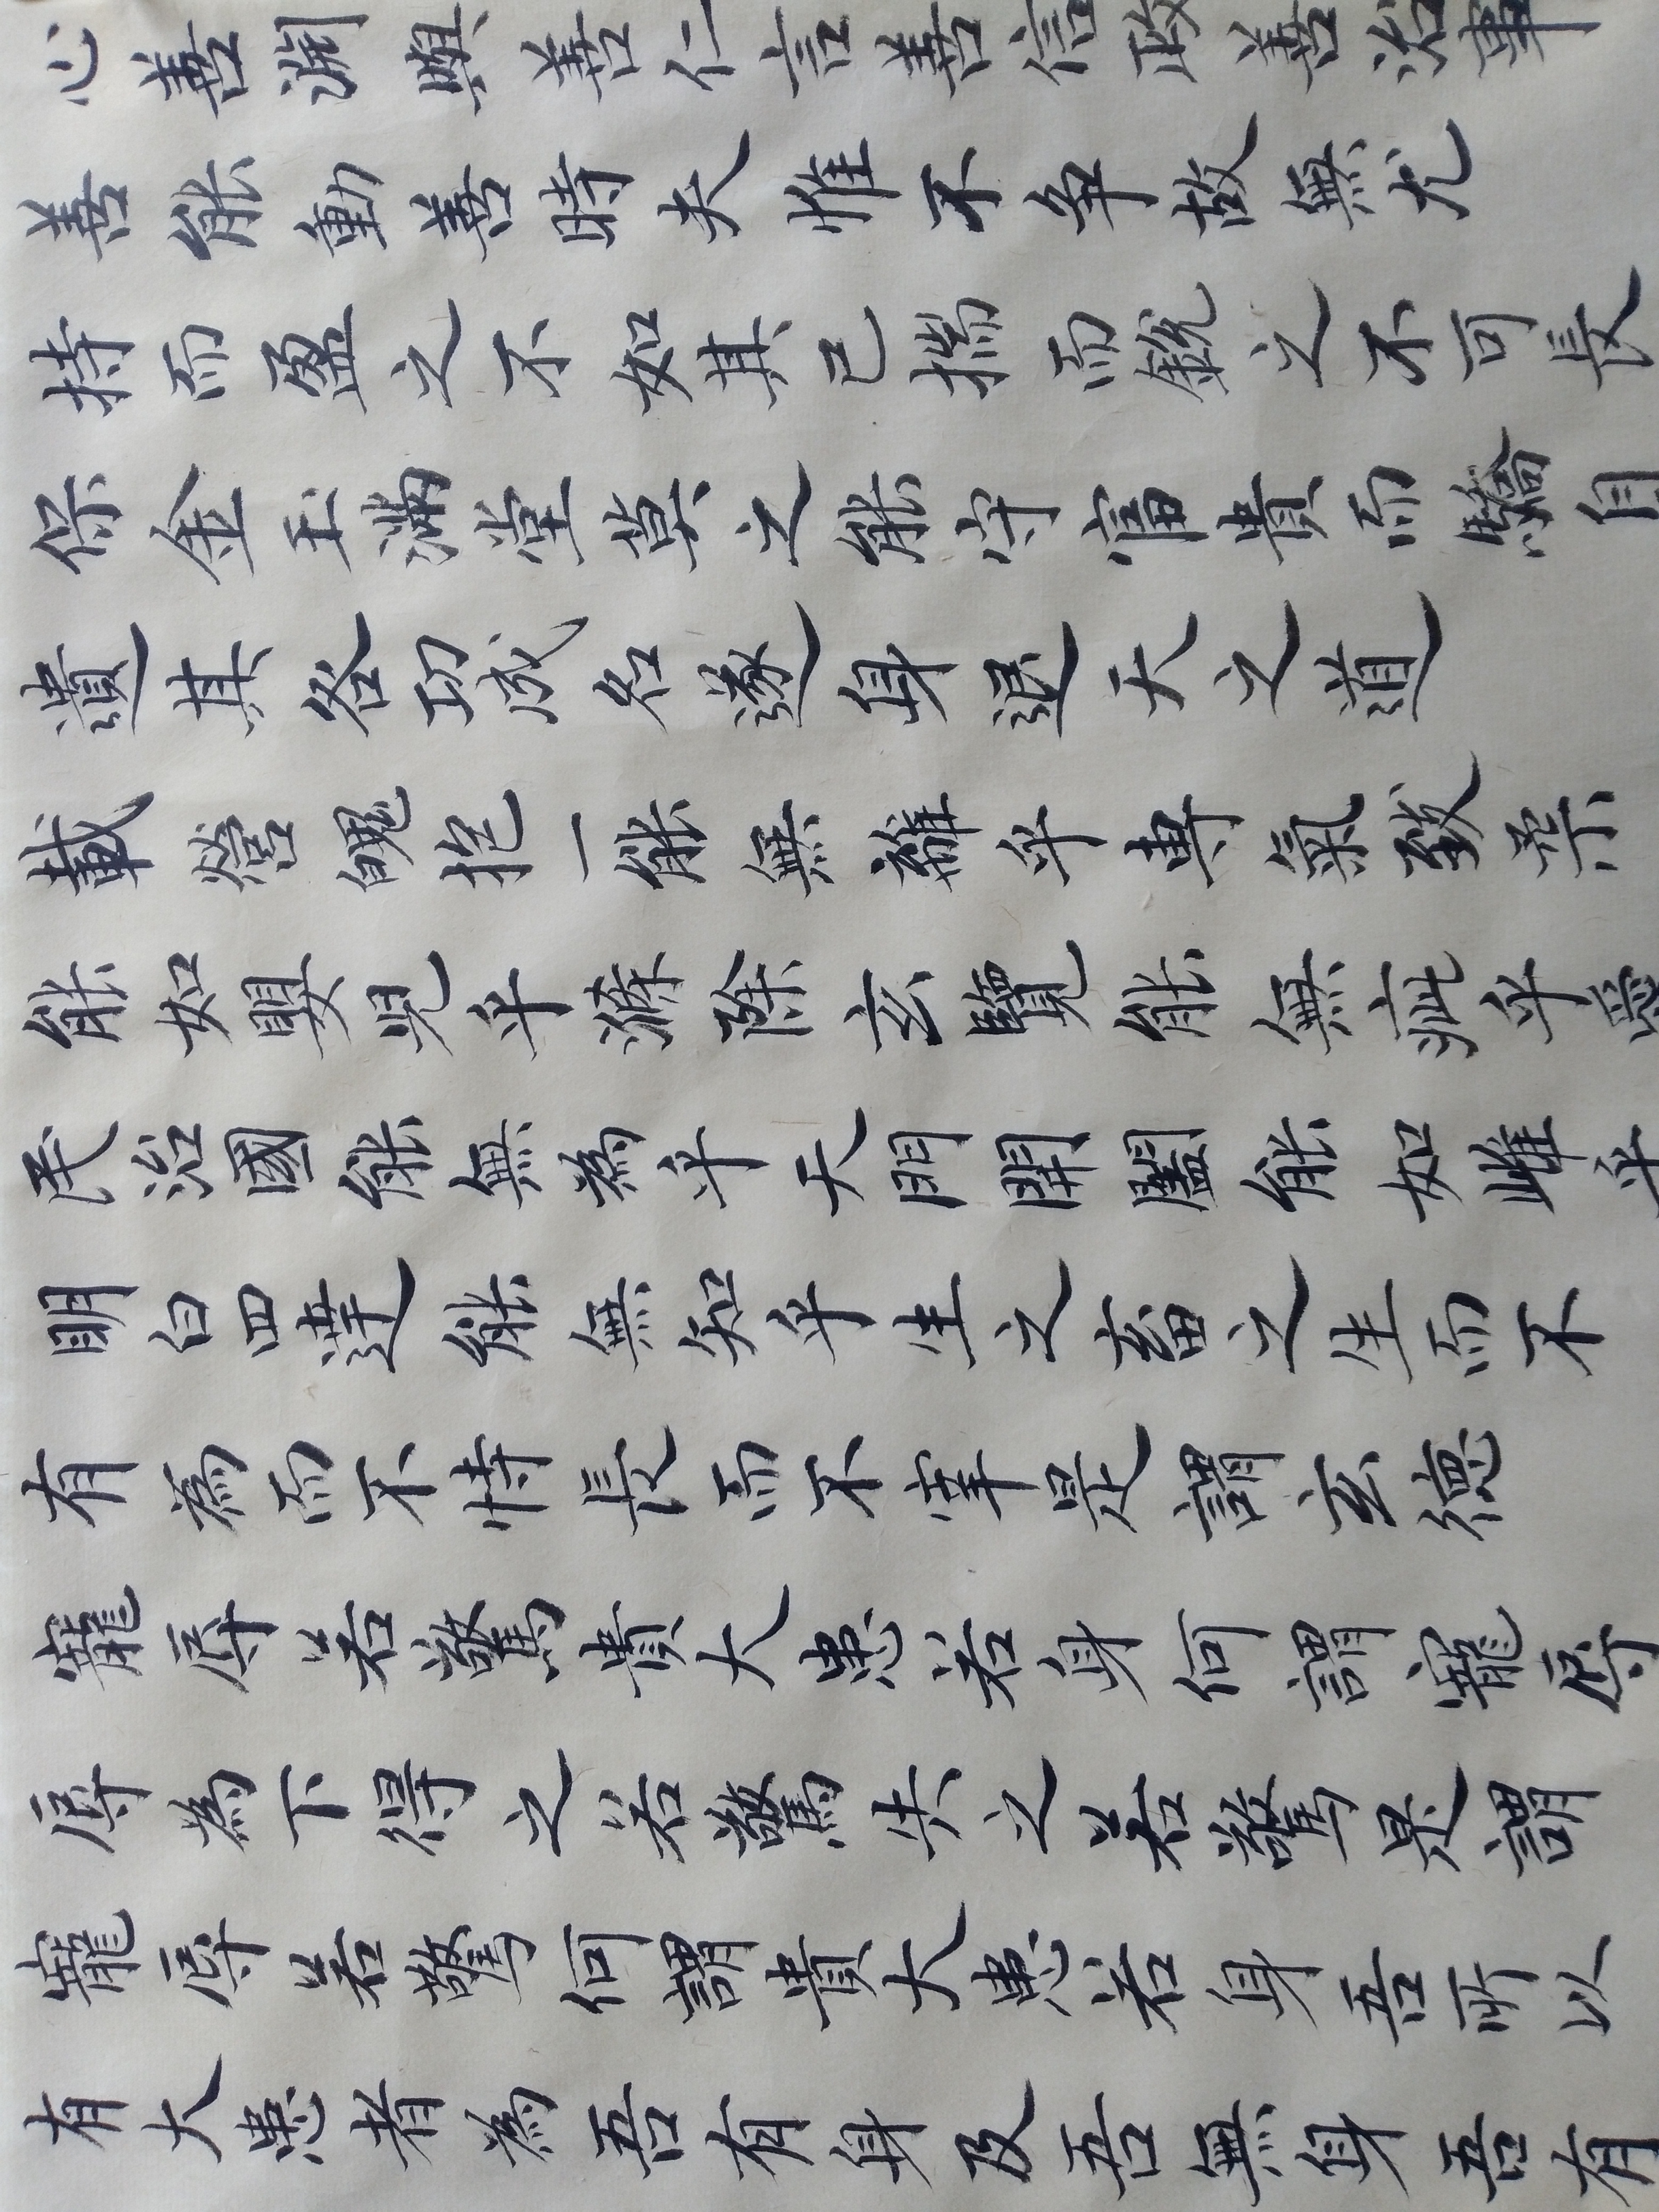 心善淵與善仁言善信政善治事
善能動善時夫惟不爭故無尤
持而盈之不如其已揣而銳之不可長
保金玉滿堂莫之能守富貴而驕自
遺其咎功成名遂身退天之道
載營魄抱一能無離乎專氣致柔
能如嬰兒乎滌除玄覽能無疵乎愛
民治國能無為乎天門開闔能如雌乎
明白四達能無知乎生之畜之生而不
有為而不恃長而不宰是謂玄德
寵辱若驚貴大患若身何謂寵辱
辱為下得之若驚失之若驚是謂
寵辱若驚何謂貴大患若身吾所以
有大患者為吾有身及吾無身吾有